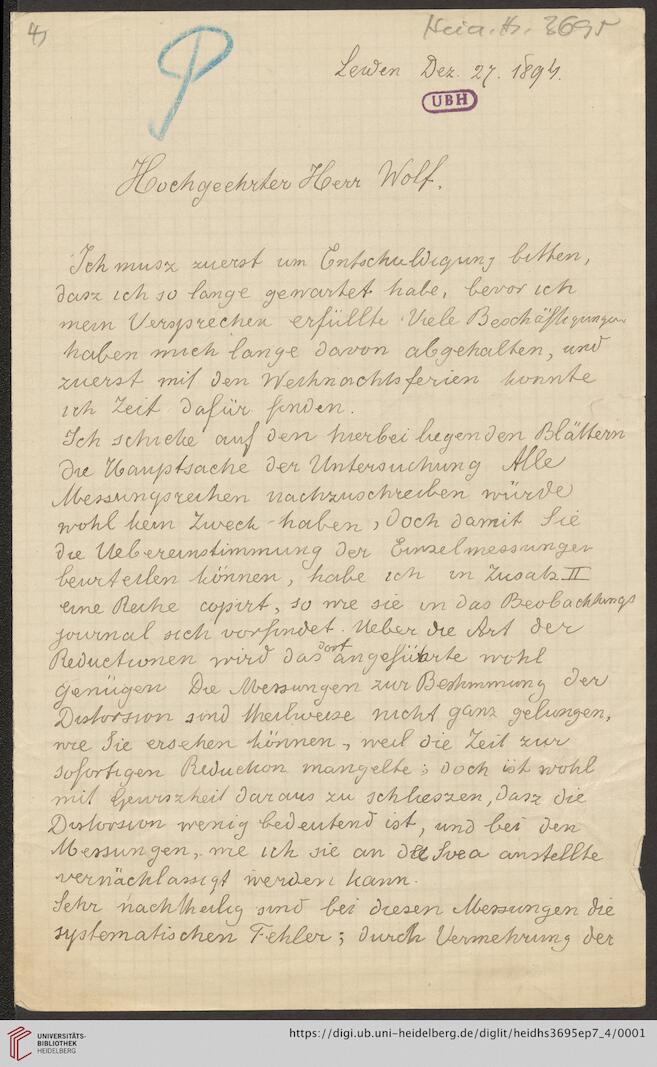 4)
Heid. Hs. 3695
Leiden Dez. 27. 1894.
UBH
Hochgeehrter Herr Wolf.
Ich musz zuerst um Entschuldigung bitten,
dasz ich so lange gewartet habe, bevor ich
mein Versprechen erfüllte. Viele Beschäftigungen
haben mich lange davon abgehalten, und
zuerst mit den Weihnachtsferien konnte
ich Zeit dafür finden.
Ich schicke auf den hierbei liegenden Blättern
die Hauptsache der Untersuchung. Alle
Messungsreihen nachzuschreiben würde
wohl kein Zweck haben, doch damit Sie
die Uebereinstimmung der Einzelmessungen
beurteilen können, habe ich in Zusatz II
eine Reihe copirt, so wie sie in das Beobachtungs
journal sich vorfindet. Ueber die Art der
Reductionen wird das dort angeführte wohl
genügen. Die Messungen zur Bestimmung der
Distorsion sind theilweise nicht ganz gelungen,
wie Sie ersehen können, weil die Zeit zur
sofortigen Reduction mangelte; doch ist wohl
mit Gewiszheit daraus zu schlieszen, dasz die
Distorsion wenig bedeutend ist, und bei den
Messungen, wie ich sie an der Svea anstellte
vernachlässigt werden kann.
Sehr nachtheilig sind bei diesen Messungen die
systematischen Fehler; durch Vermehrung der
UNIVERSITÄTS-
BIBLIOTHEK
HEIDELBERG
https://digi.ub.uni-heidelberg.de/diglit/heidhs3695ep7_4/0001